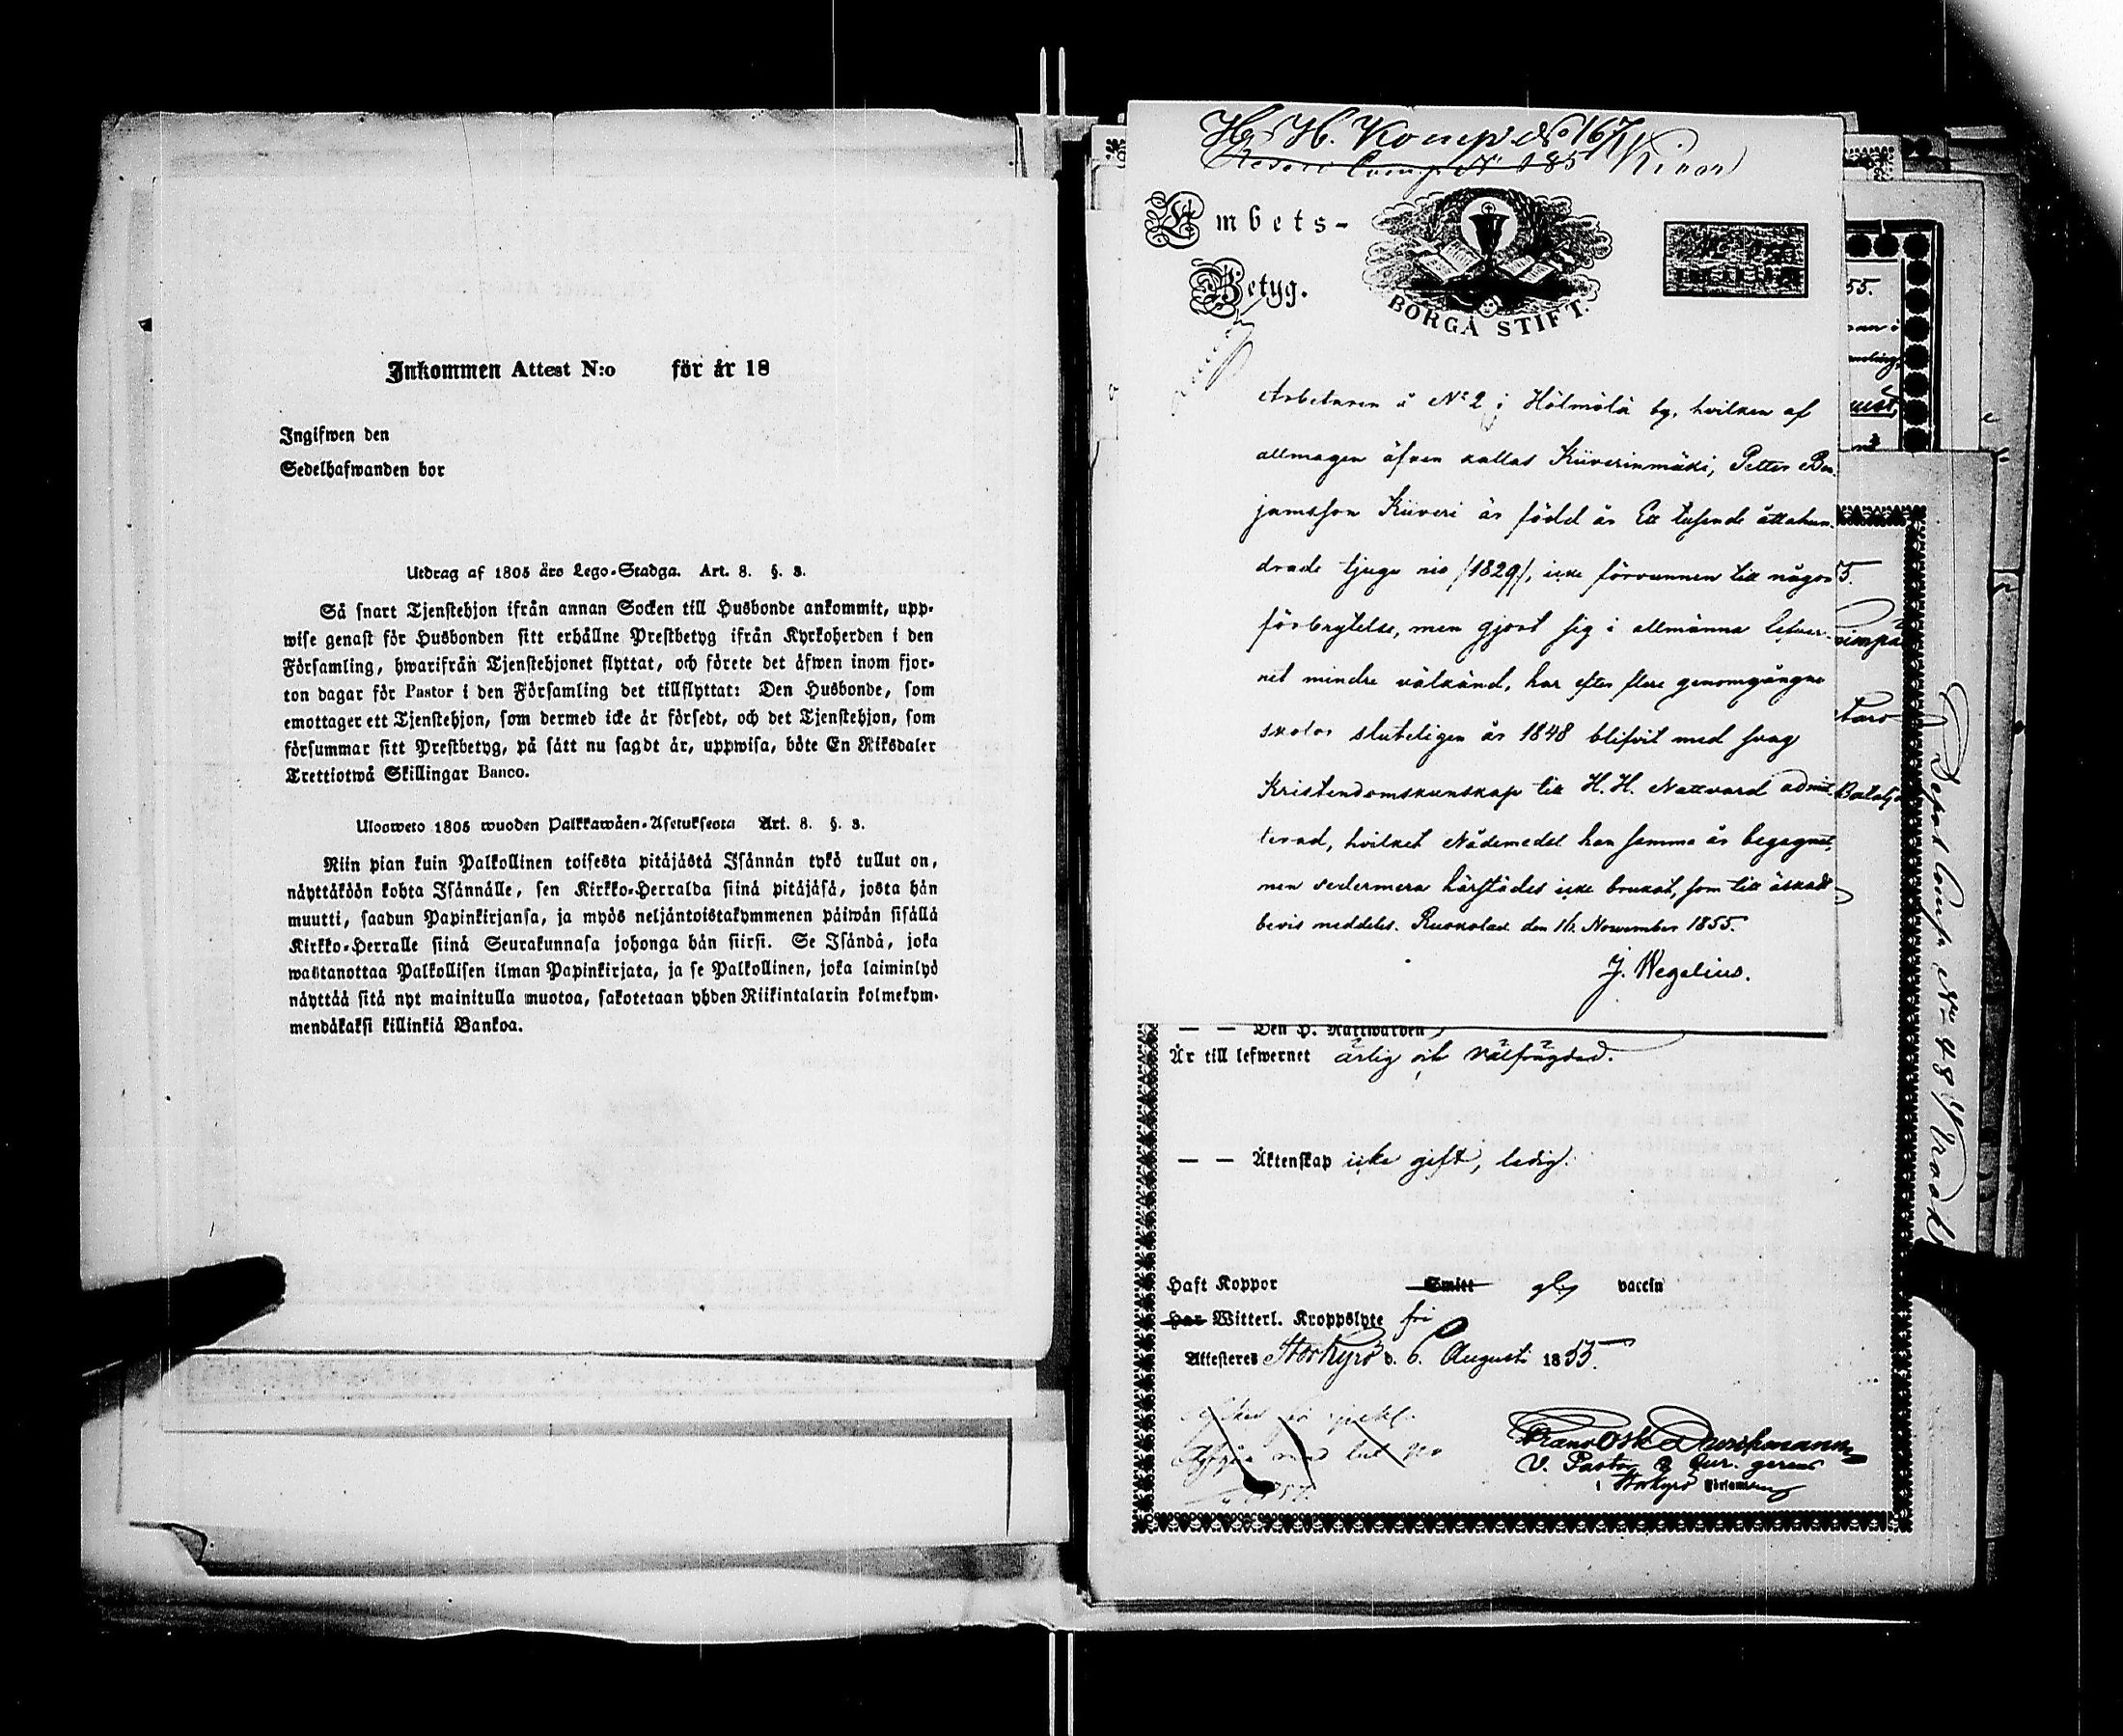 Inkommen Attest N:o för år 18
Ingifwen den
Sedelhafwanden bor
Utdrag af 1805 års Lego-Stadga. Art. 8. §. 3.
Så snart Tjenstehjon ifrån annan Socken till Husbonde ankommit, upp-
wise genast för Husbonden sitt erhållne Prestbetyg ifrån Kyrkoherden i den
Församling, hwarifrån Tjenstehjonet flyttat, och förete det äfwen inom fjor-
ton dagar för Pastor i den Församling det tillflyttat: Den Husbonde, som
emottager ett Tjenstehjon, som dermed icke är försedt, och det Tjenstehjon, som
försummar sitt Prestbetyg, på sätt nu sagdt är, uppwisa, böte En Riksdaler
Trettiotwå Skillingar Banco.
Ulosweto 1805 wuoden Palkkawäen-Asetuksesta Art. 8. §. 3.
Niin pian kuin Palkollinen toisesta pitäjästä Isännän tykö tullut on,
näyttäköön kohta Isännälle, sen Kirkko-Herralda siinä pitäjäsä, josta hän
muutti, saadun Papinkirjansa, ja myös neljäntoistakymmenen päiwän sisällä
Kirkko-Herralle siinä Seurakunnasa johonga hän siirsi. Se Isändä, joka
wastanottaa Palkollisen ilman Papinkirjata, ja se Palkollinen, joka laiminlyö
näyttää sitä nyt mainitulla muotoa, sakotetaan yhden Riikintalarin kolmekym-
mendäkaksi killinkiä Bankoa.
H. Komp No 167
Comp. N 185 Kivari
Embets-
Betyg.
BORGÅ STIFT.
Arbetaren å No 2 i Hölmölä by, hvilken af
allmogen äfven kallas Kiiverinmäki, Petter Ben-
jamsson Kiiveri är född år Ett tusende åttahun-
drade tjugu nio /1829/, icke förvunnen till någon
förbrytelse, men gjort sig i allmänna lefver-
net mindre välkänd, har efter flere genomgångne
skolor sluteligen år 1848 blifvit med svag
Kristendomskunskap till H. H. Nattvard admit-
terad, hvilket Nådemedel han samma år begagnat,
men sedermera härstädes icke brukat, som till äskadt
bevis meddeles. Ruokolax den 16 November 1855.
J. Wegelius.
— — Den H. Nattwarden
Är till lefwernet ärlig och välfrägdad.
— — Äktenskap icke gift, ledig.
Haft Koppor Smitt vaccin
Har Witterl. Kroppslyte fri
Attesteres Storkyro d. 6. Augusti 1855.
V. Pastor
i Storkyro Församling
55.
Depot Comp. No 48